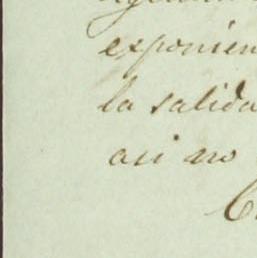 exponien
la salida
asi no